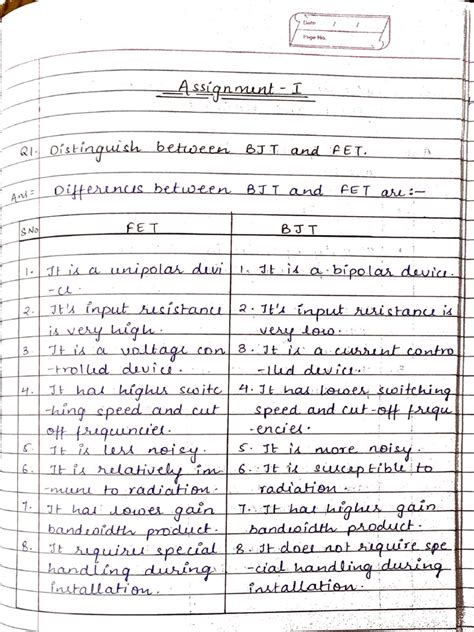 Date / /
Page No.
Assignment - I
Q1. Distinguish between BJT and FET.
Ans= Differences between BJT and FET are:-
S.No FET BJT
1. It is a unipolar devi 1. It is a bipolar device.
-ce.
2. It's input resistance 2. It's input resistance is
is very high. very low.
3 It is a voltage con 3. It is a current contro
-trolled device. -lled device.
4. It has higher switc 4. It has lower switching
-hing speed and cut speed and cut-off frequ
off frequencies. -encies.
5. It is less noisy. 5. It is more noisy.
6. It is relatively im 6. It is susceptible to
-mune to radiation. radiation.
7. It has lower gain 7. It has higher gain
bandwidth product. bandwidth product.
8. It requires special 8. It does not require spe
handling during -cial handling during
installation. installation.